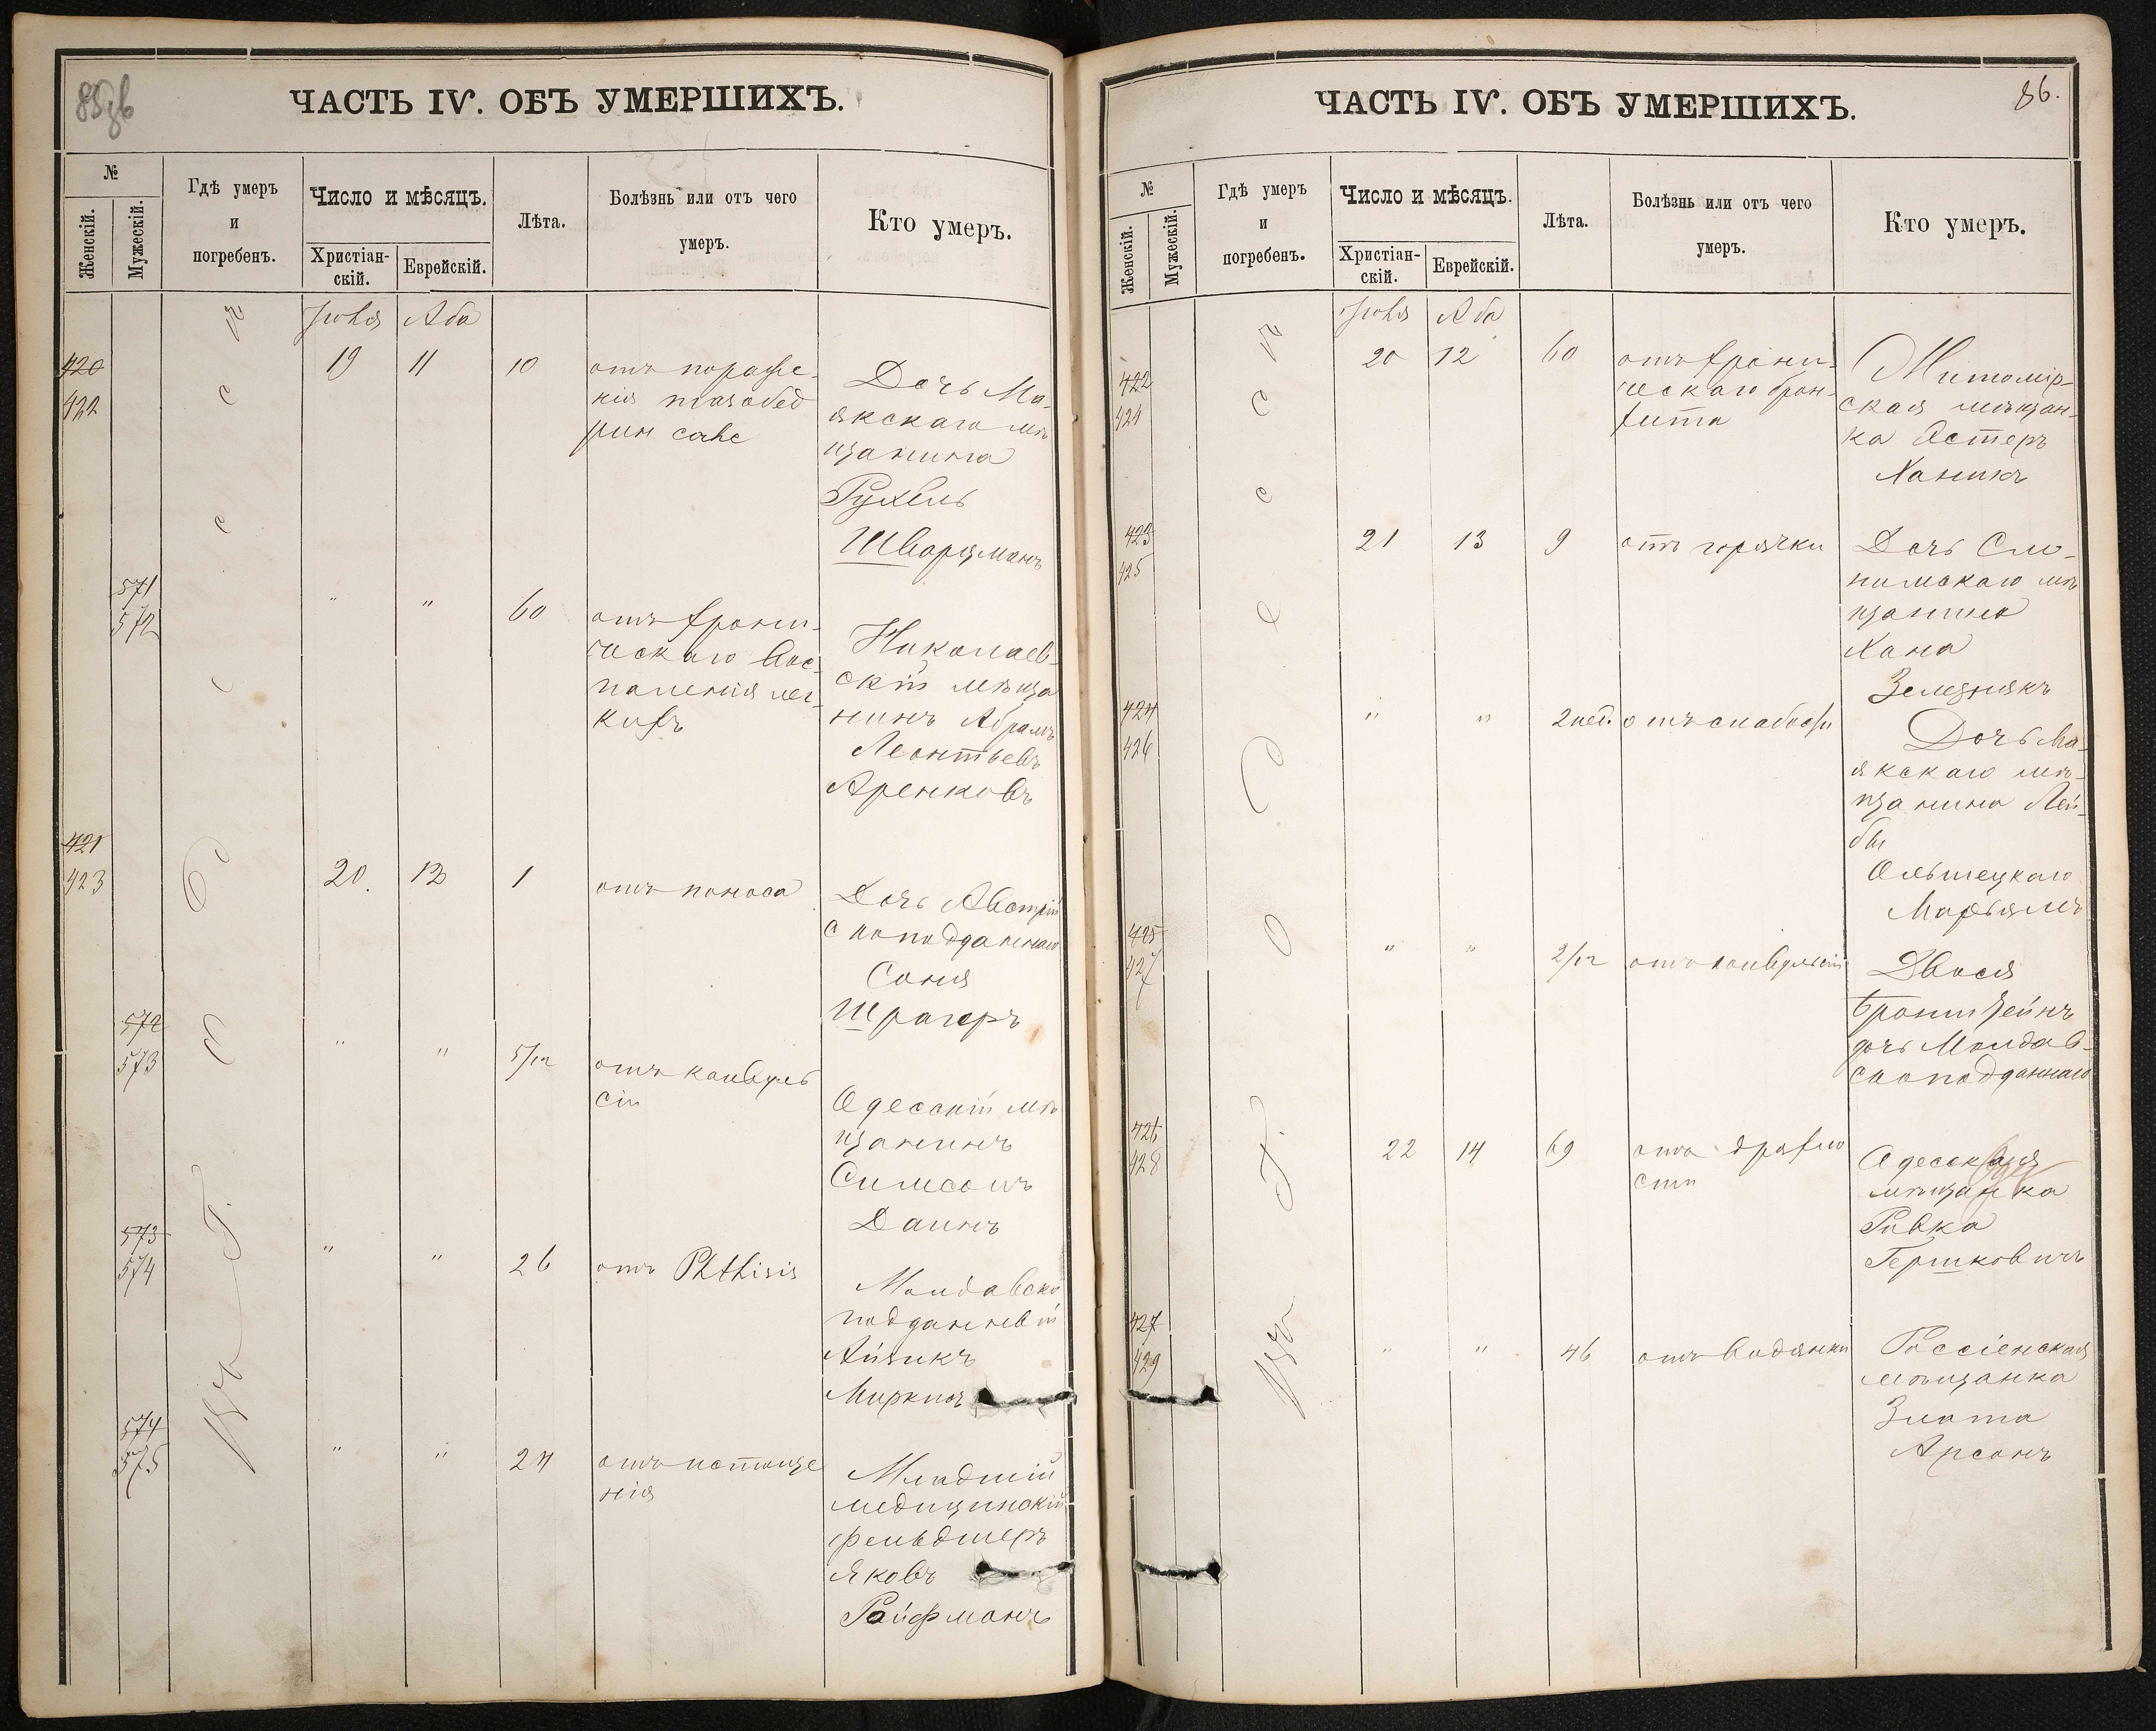 85об
ЧАСТЬ IV. ОБЪ УМЕРШИХЪ.
№
Женскій.
Мужескій.
Гдѣ умеръ
и
погребенъ.
Число и мѣсяцъ.
Христіан-
скій.
Еврейскій.
Лѣта.
Болѣзнь или отъ чего
умеръ.
Кто умеръ.
Въ г. Одессѣ
Іюля Аба
420
422
19 11 10
отъ пораже-
нія тазобед
рин
Дочь Ма-
якскаго мѣ
щанина
Рухель
Шварцманъ
571
572
" " 60
отъ хрони-
ческаго вос
паленія лег
кихъ
Николаев-
скій мѣща
нинъ Абрамъ
Леонтьевъ
Аренковъ
421
423
20. 12 1
отъ поноса
Дочь Австрій
скоподданнаго
Соня
Шрагеръ
572
573
" " 5/12
отъ конвуль
сіи
Одесскій мѣ
щанинъ
Симсонъ
Даинъ
573
574
" " 26
отъ Phthisis
Молдавско
подданный
Айзикъ
Миркинъ
574
575
" " 24
отъ истоще
нія
Младшій
медицинскій
фельдшеръ
Яковъ
Райфманъ
86.
ЧАСТЬ IV. ОБЪ УМЕРШИХЪ.
№
Женскій.
Мужескій.
Гдѣ умеръ
и
погребенъ.
Число и мѣсяцъ.
Христіан-
скій.
Еврейскій.
Лѣта.
Болѣзнь или отъ чего
умеръ.
Кто умеръ.
Въ г. Одессѣ
Іюля Аба
422
424
20 12 60
отъ хрони-
ческаго брон-
хита
Житомір-
ская мѣщан-
ка Эстеръ
Ханикъ
423
425
21 13 9
отъ горячки
Дочь Сло-
нимскаго мѣ
щанина
Хана
Зелезнякъ
424
426
" " 2 нед.
отъ слабости
Дочь Ма-
якскаго мѣ-
щанина Лей-
бы
Ольшецкаго
Марьямъ
425
427
" " 2/12
отъ конвульсій
Двося
Бронштейнъ
дочь Молдав-
скоподданнаго
426
428
22 14 69
отъ дряхло
сти
Одесская
мѣщанка
Ривка
Гершковичъ
427
429
" " 46
отъ водянки
Россіенская
мѣщанка
Злата
Арсонъ